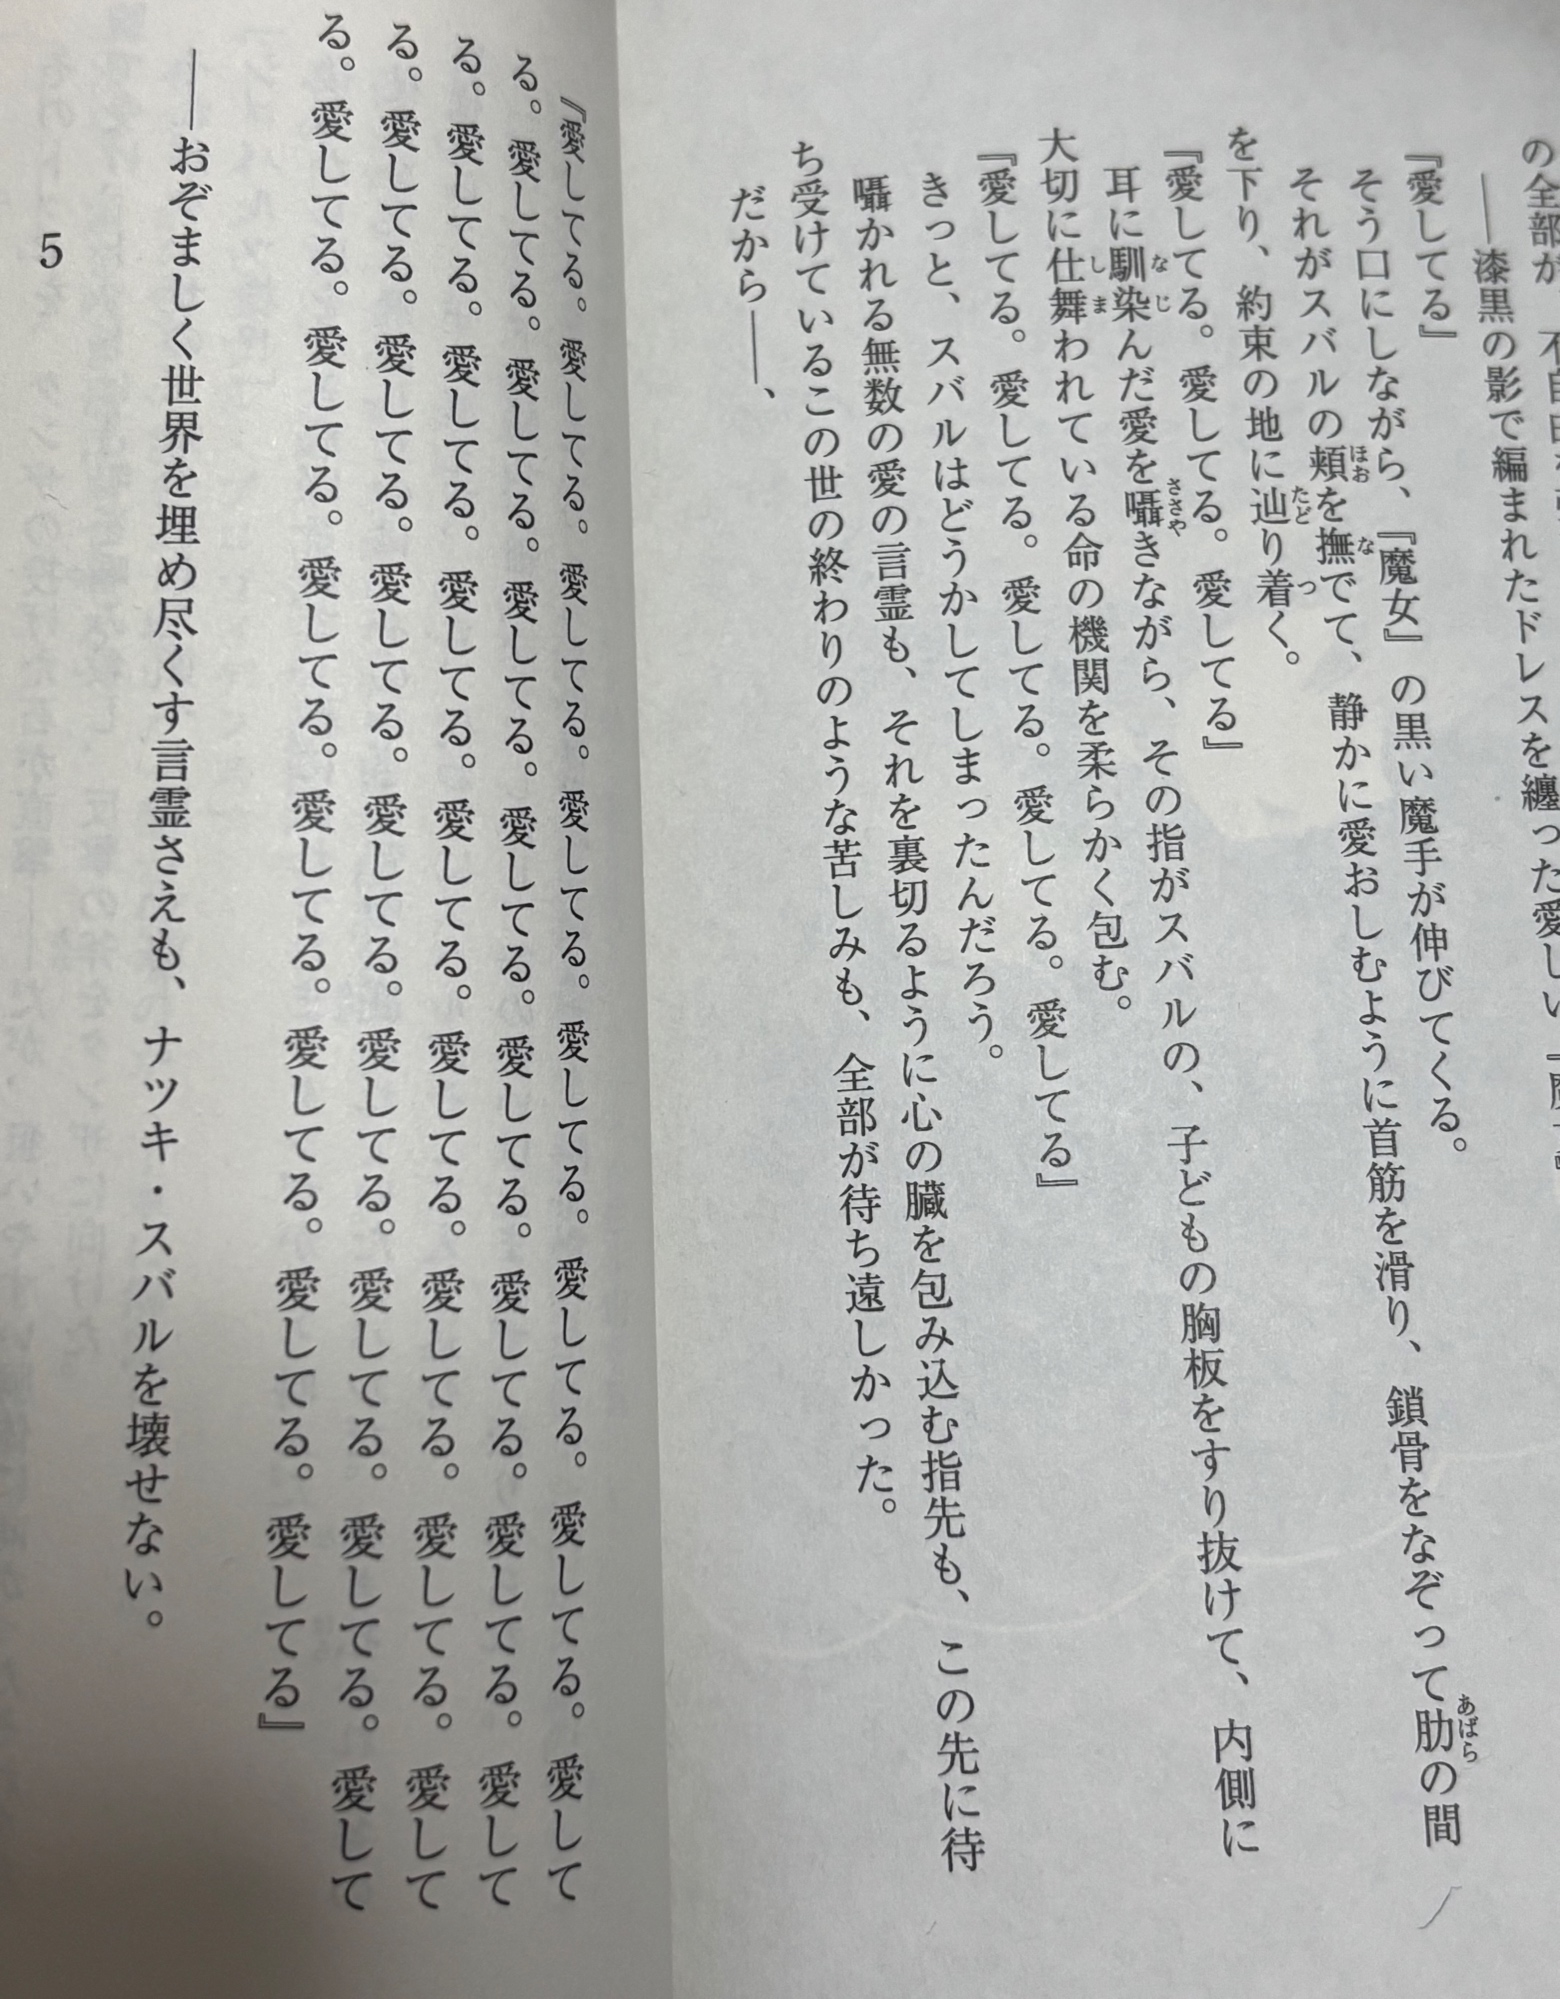 の全部が
――漆黒の影で編まれたドレスを纏った愛しい
『愛してる』
そう口にしながら、『魔女』の黒い魔手が伸びてくる。
それがスバルの頬を撫でて、静かに愛おしむように首筋を滑り、鎖骨をなぞって肋の間
を下り、約束の地に辿り着く。
『愛してる。愛してる。愛してる』
耳に馴染んだ愛を囁きながら、その指がスバルの、子どもの胸板をすり抜けて、内側に
大切に仕舞われている命の機関を柔らかく包む。
『愛してる。愛してる。愛してる。愛してる。愛してる』
きっと、スバルはどうかしてしまったんだろう。
囁かれる無数の愛の言霊も、それを裏切るように心の臓を包み込む指先も、この先に待
ち受けているこの世の終わりのような苦しみも、全部が待ち遠しかった。
だから――、
『愛してる。愛してる。愛してる。愛してる。愛してる。愛してる。愛してる。愛して
る。愛してる。愛してる。愛してる。愛してる。愛してる。愛してる。愛してる。愛して
る。愛してる。愛してる。愛してる。愛してる。愛してる。愛してる。愛してる。愛して
る。愛してる。愛してる。愛してる。愛してる。愛してる。愛してる。愛してる。愛して
る。愛してる。愛してる。愛してる。愛してる。愛してる。愛してる。愛してる』
――おぞましく世界を埋め尽くす言霊さえも、ナツキ・スバルを壊せない。
5